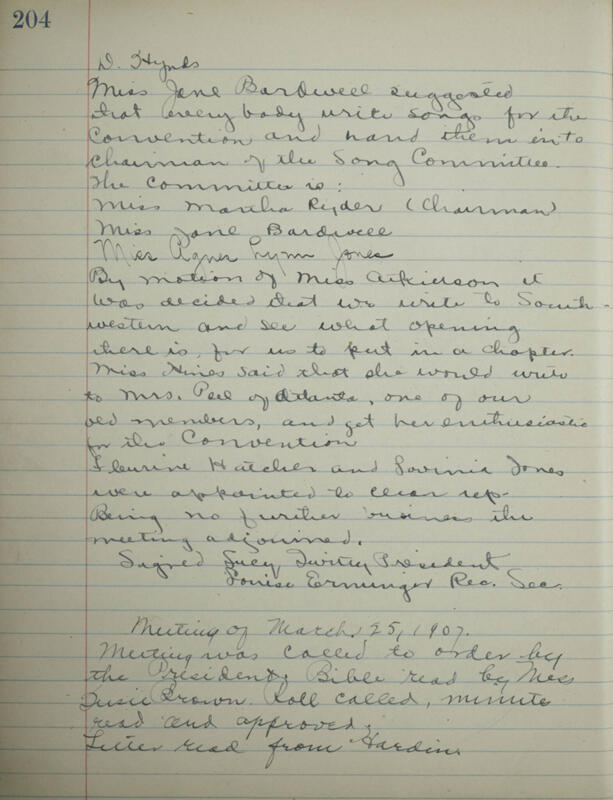 204
D. Hynds
Miss Jane Bardwell suggested
that every body write songs for the
Convention and hand them in to
Chairman of the Song Committee.
The Committee is:
Miss Martha Ryder (Chairman)
Miss Jane Bardwell
Miss Agnes Lynn Jones
By motion of Miss Atkinson it
was decided that we write to South-
western and see what opening
there is, for us to put in a chapter.
Miss Hines said that she would write
to Mrs. Peel of Atlanta, one of our
old members, and get her enthusiastic
for the Convention
Fleurine Hatcher and Lavinia Jones
were appointed to clear up-
Being no further business the
meeting adjourned.
Signed Lucy President
Louise Erminger Rec. Sec.
Meeting of March, 25, 1907.
Meeting was called to order by
the President. Bible read by Miss
Susie Brown. Roll called, minutes
read and approved.
Letter read from Hardin.